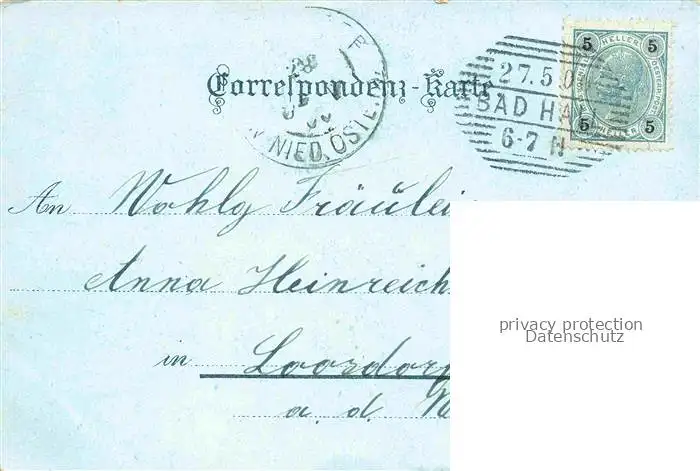 Correspondenz-Karte
5 HELLER 5
27.5.0
BAD HA
6-7 N
5 HELLER 5
NIED. ÖSTE
An Wohlg Fräulei
Anna Heinrich
in Loosdor
a. d.
privacy protection
Datenschutz